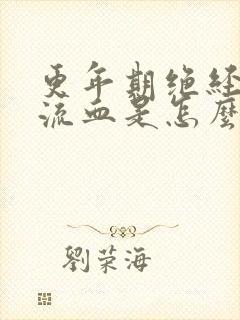 更年期绝经
流血是怎麼
劉荣海